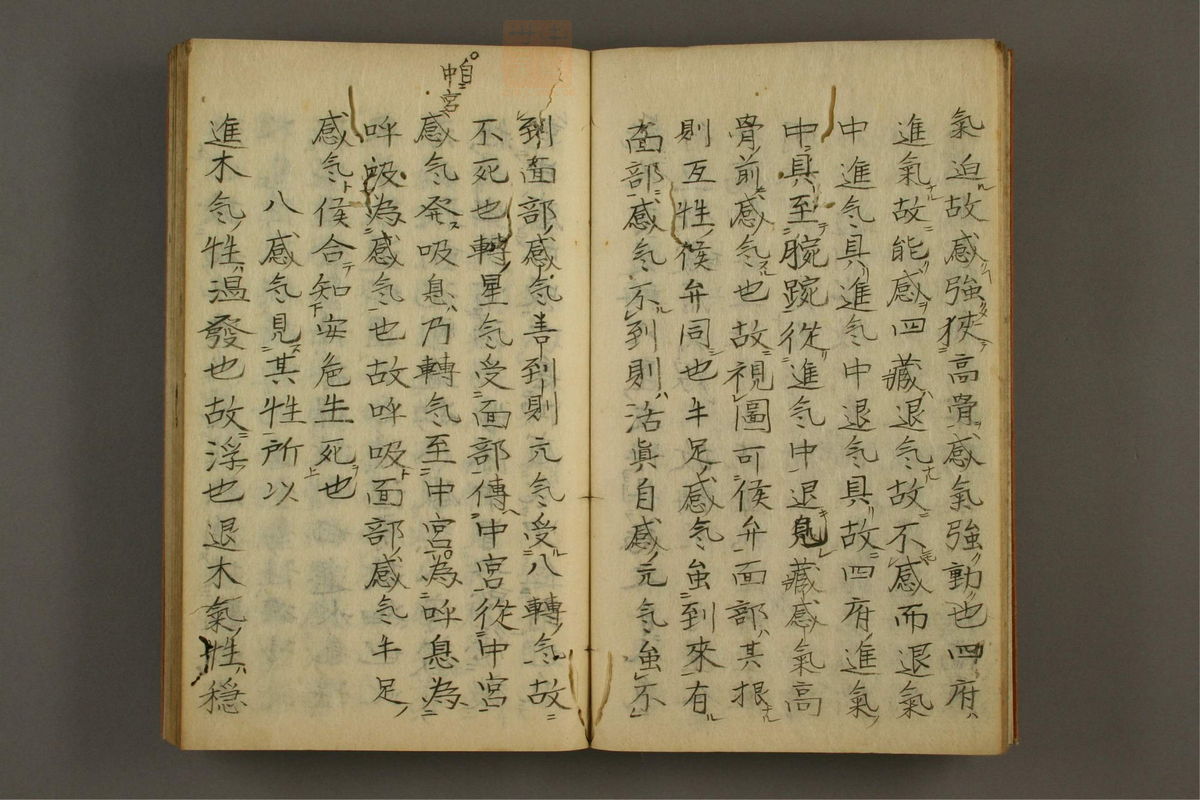 氣迫故感強狹高骨感氣強動也四府
進氣故能感四藏退气故不感而退氣
中進气具進气中退气具故四府進氣
中具至腕踠從進气中退見藏感氣高
骨前感气也故視圖可候弁面部其根
則互性候弁同也牛足感气虽到來有
面部感气不到則活眞自感元气虽不
到面部感气善到則元气受八轉气故
不死也轉星气受面部傳中宮從中宮
自中宮
感气発吸息乃轉气至中宮為呼息為
呼吸為感气也故呼吸面部感气牛足
感气候合知安危生死也
八感气見其性所以
進木气性温發也故浮也退木氣性穏